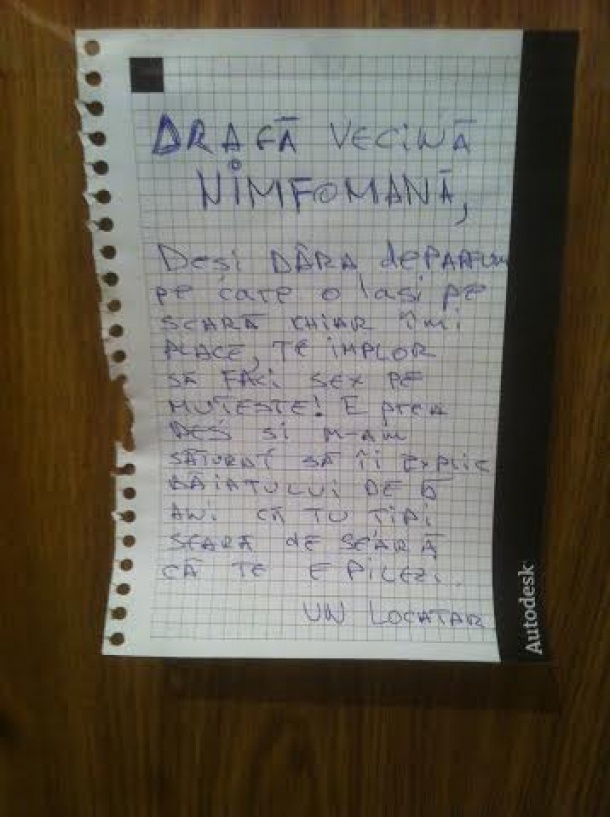 DRAGĂ VECINĂ
NIMFOMANĂ,
Deși DÂRA dePARFUM
pe care o lași pe
SCARĂ CHIAR îMi
PLACE, TE IMPLOR
SĂ FACi SEX PE
MUTEȘTE! E prea
DES Si M-AM
SĂTURAT SĂ ÎI EXPLIC
BĂIATULUI DE 6
ANi CĂ TU ȚIPi
SEARĂ de SEARĂ
CĂ TE EPILEZI.
UN LOCATAR
Autodesk